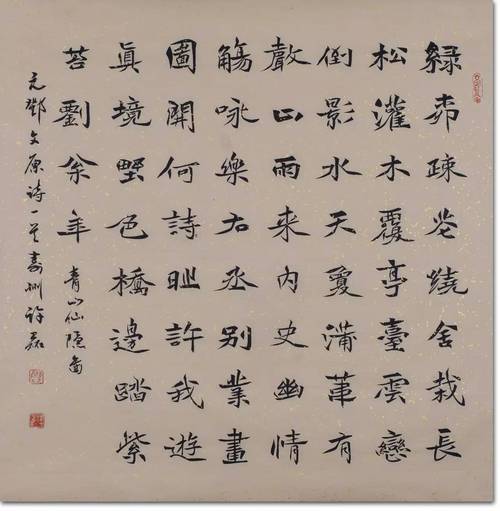 緑疎花繞舍栽長
松灌木覆亭臺雲巒
倒影水天夐蒲葦有
聲山雨來內史幽情
觴詠樂右丞别業畫
圖開何詩許我遊
眞境墅色橋邊踏紫
苔劉余年 青山仙隱圖
元鄧文原詩一首壽州許磊